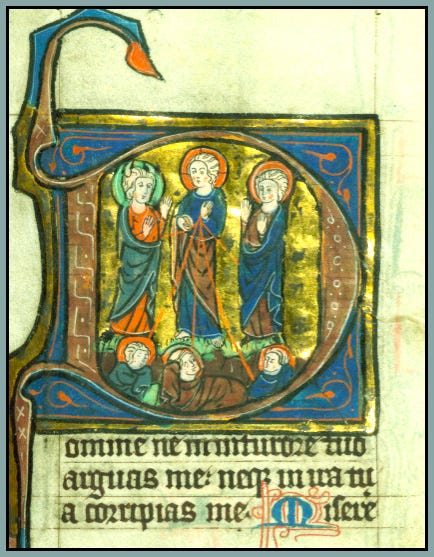 Domine ne in furore tuo
arguas me: neqꝫ in ira tu
a corripias me. Misere